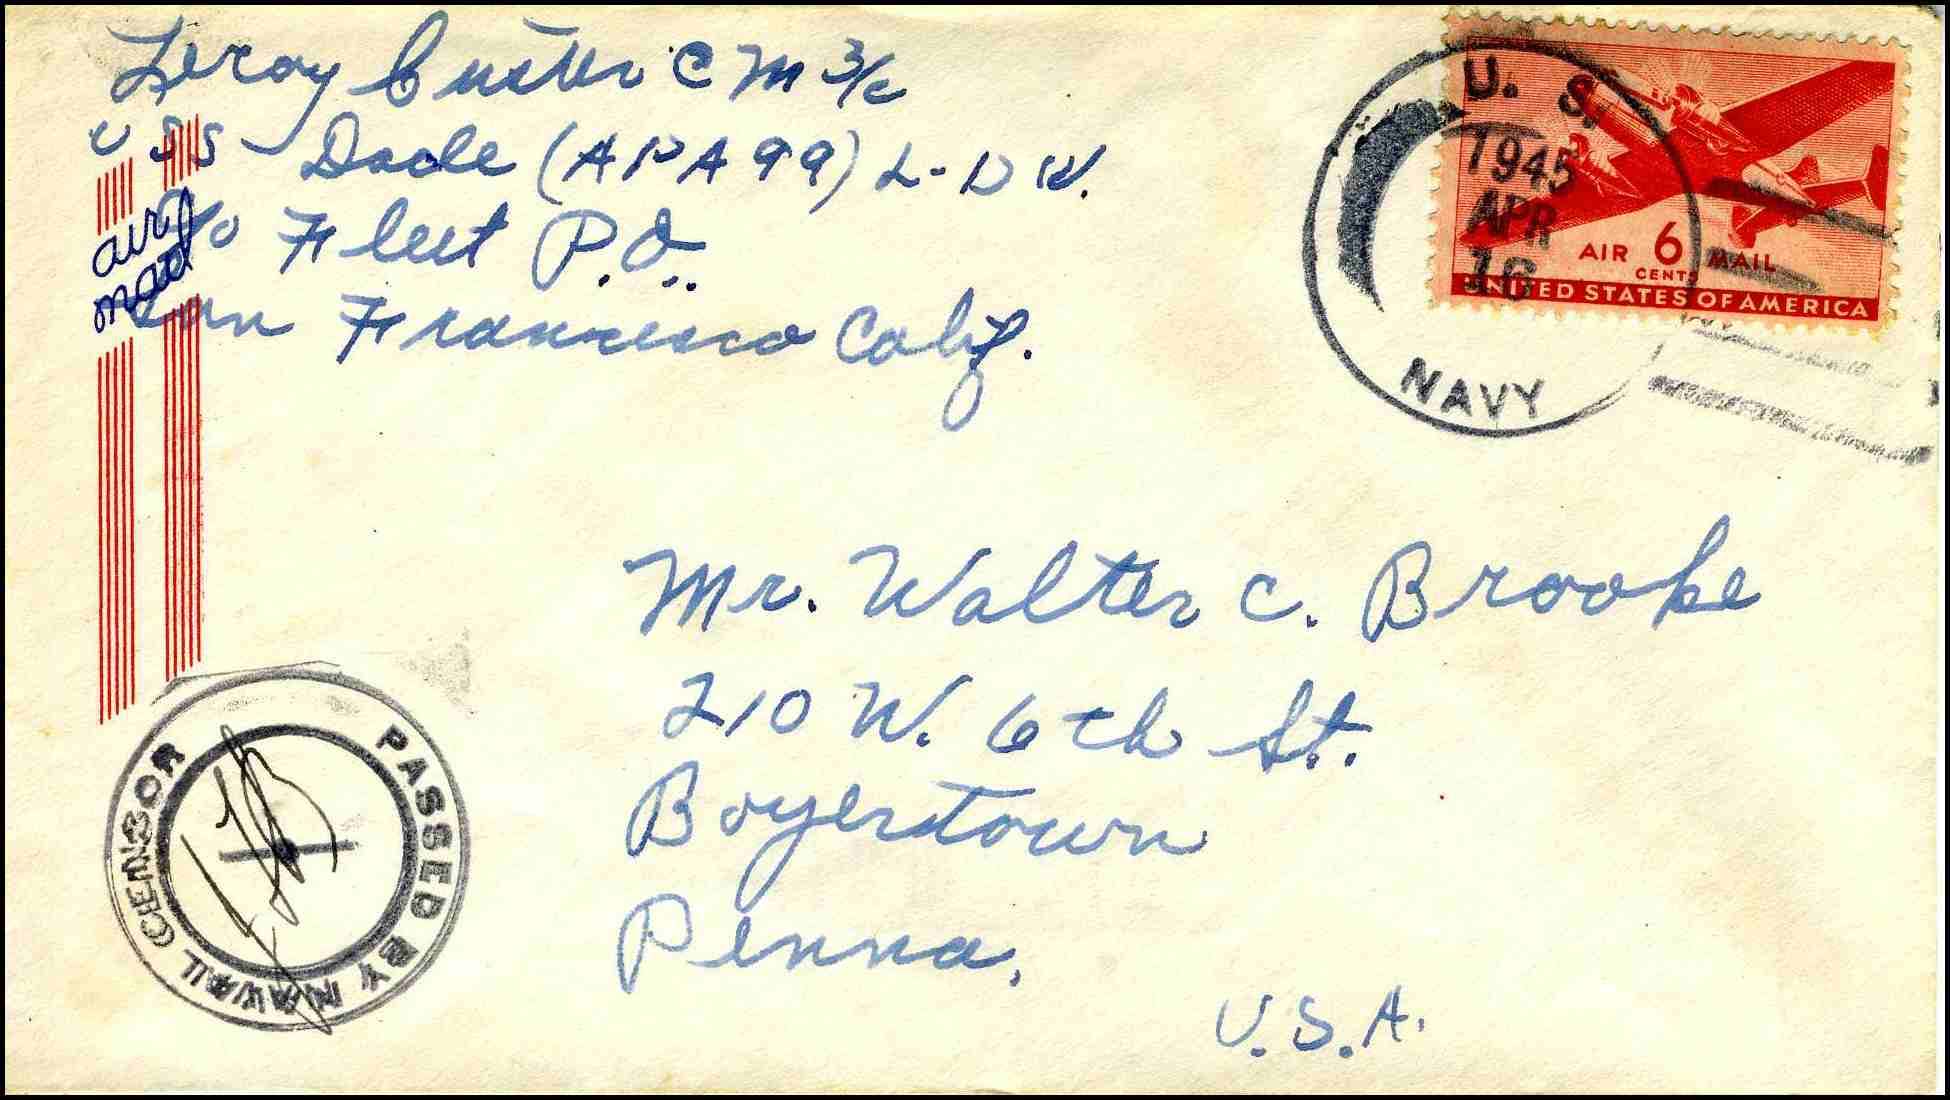 Leroy Custer C M 3/c
USS Dade (APA 99) L-Div.
c/o Fleet P.O.
San Francisco Calif.
air
mail
U. S.
1945
APR
16
NAVY
AIR 6 MAIL
CENTS
UNITED STATES OF AMERICA
Mr. Walter C. Brooke
210 W. 6th St.
Boyertown
Penna.
U.S.A.
PASSED BY NAVAL CENSOR